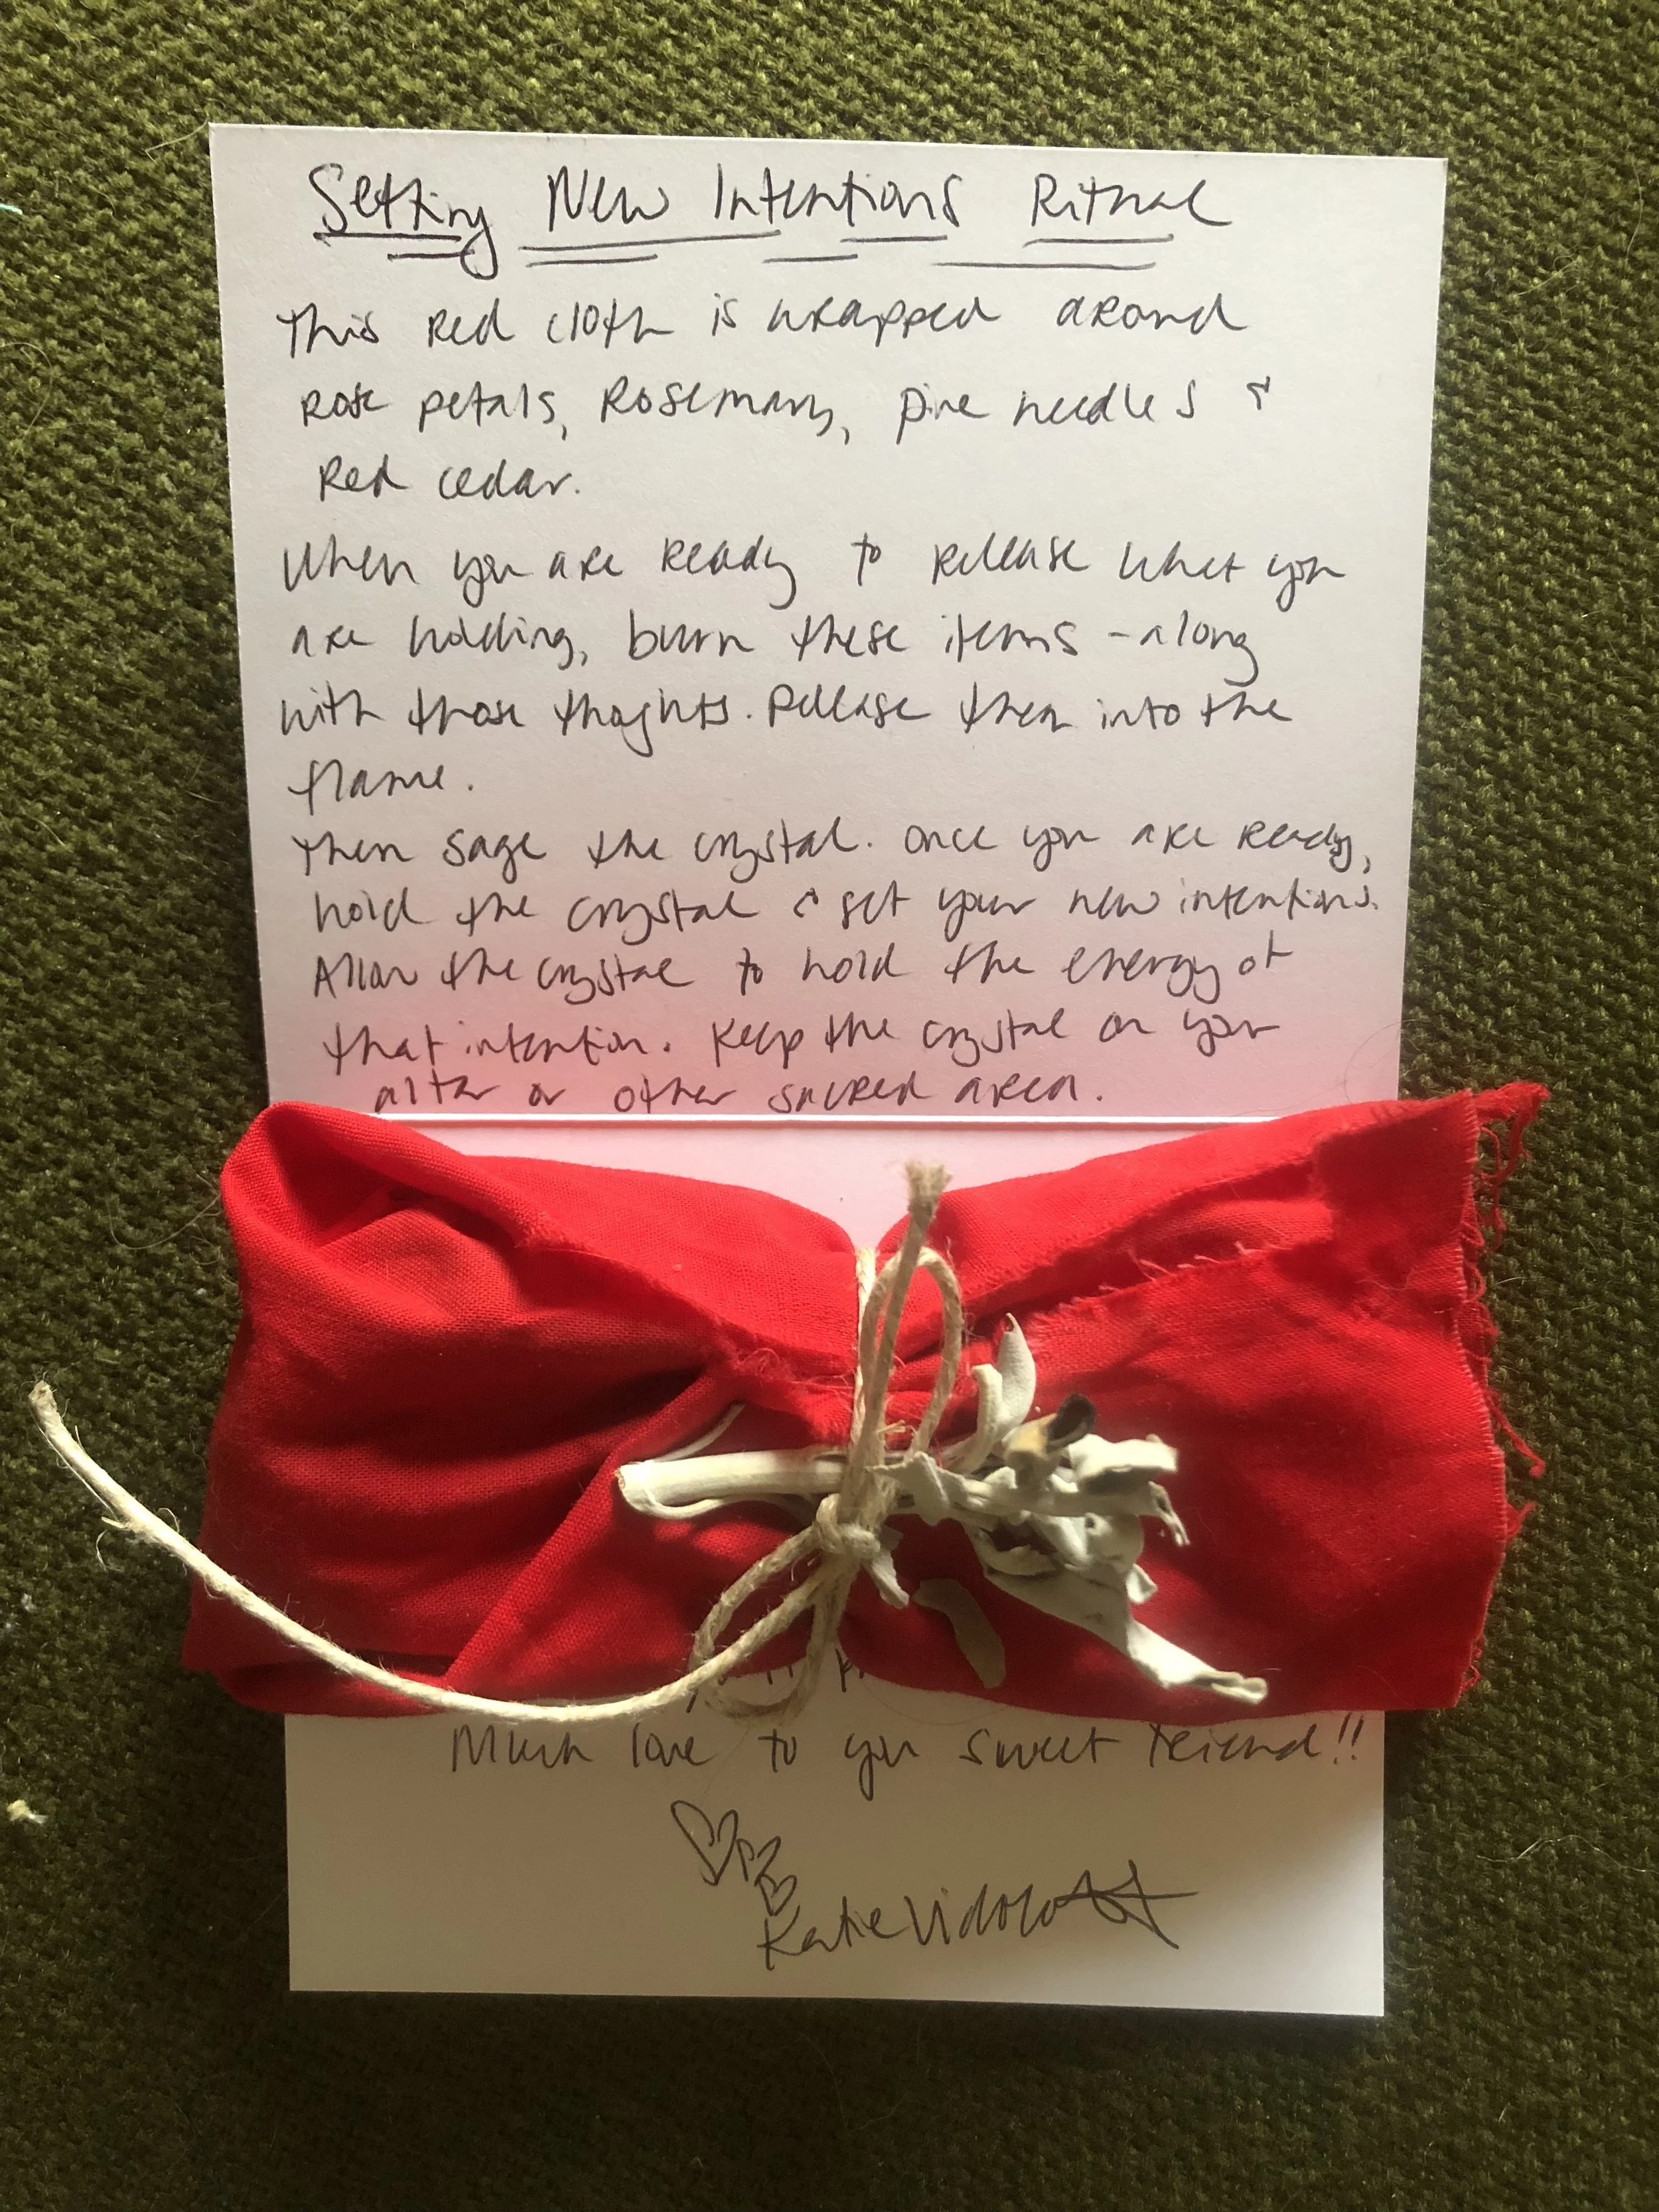 Setting New Intentions Ritual
This red cloth is wrapped around
rose petals, rosemary, pine needles &
Red cedar.
When you are ready to release what you
are holding, burn these items - along
with those thoghts. Release them into the
flame.
Then sage the crystal. Once you are ready,
hold the crystal & set your new intentions.
Allow the crystal to hold the energy of
that intention. Keep the crystal on your
alter or other sacred area.
Much love to you sweet friend!!
Katie